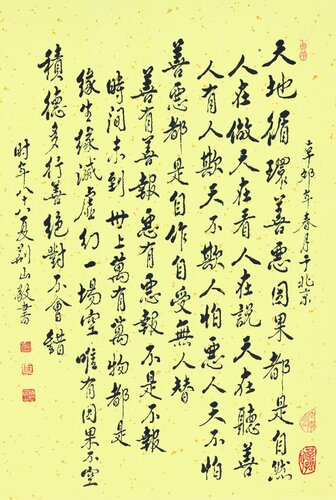 辛卯年春月于北京
天地循環善惡因果都是自然
人在做天在看人在説天在聽善
人有人欺天不欺人怕惡人天不怕
善惡都是自作自受無人替
善有善報惡有惡報不是不報
時间未到世上萬有萬物都是
缘生缘滅虚幻一場空唯有因果不空
積德多行善絕對不會錯
时年八十八夏荆山敬書